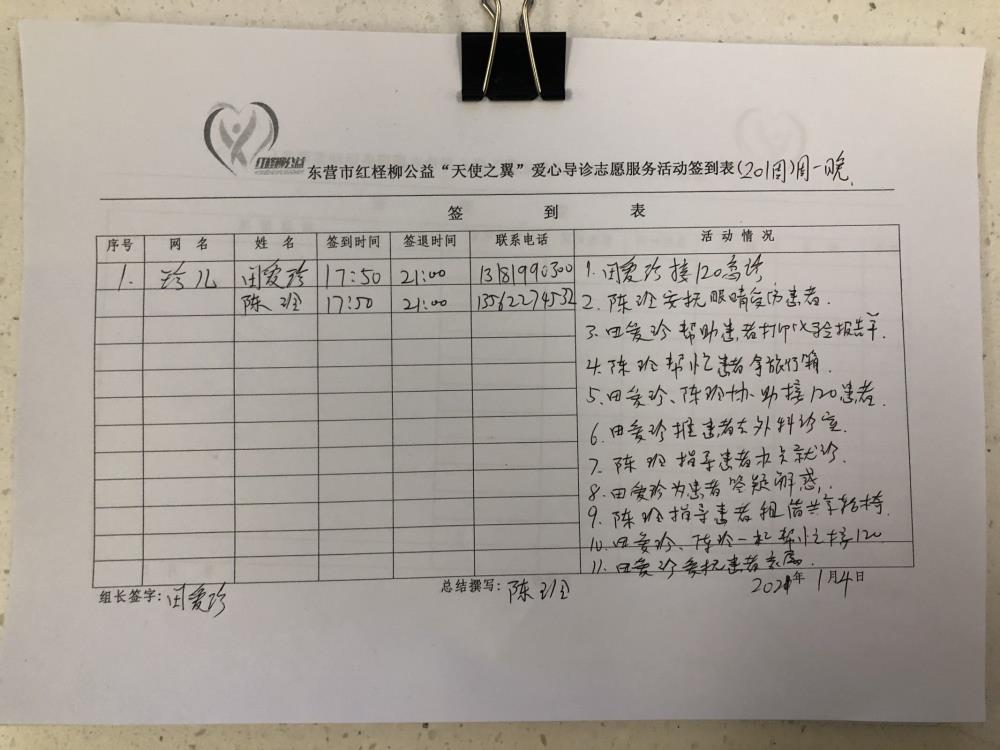 红柽柳公益
东营市红柽柳公益“天使之翼”爱心导诊志愿服务活动签到表(201周)周一晚
签 到 表
序号 网 名 姓 名 签到时间 签退时间 联系电话 活 动 情 况
1. 珍儿 田爱珍 17:50 21:00 13181990300 1. 田爱珍接120急诊
陈玲 17:50 21:00 13562274532 2. 陈玲安抚眼睛受伤患者.
3. 田爱珍帮助患者打印化验报告单.
4. 陈玲帮忙患者拿旅行箱.
5. 田爱珍、陈玲协助接120患者.
6. 田爱珍推患者去外科诊室.
7. 陈玲指导患者就诊.
8. 田爱珍为患者答疑解惑.
9. 陈玲指导患者租借共享轮椅.
10. 田爱珍、陈玲一起帮忙接120
11. 田爱珍安抚患者家属.
组长签字: 田爱珍 总结撰写: 陈玲 2021年1月4日